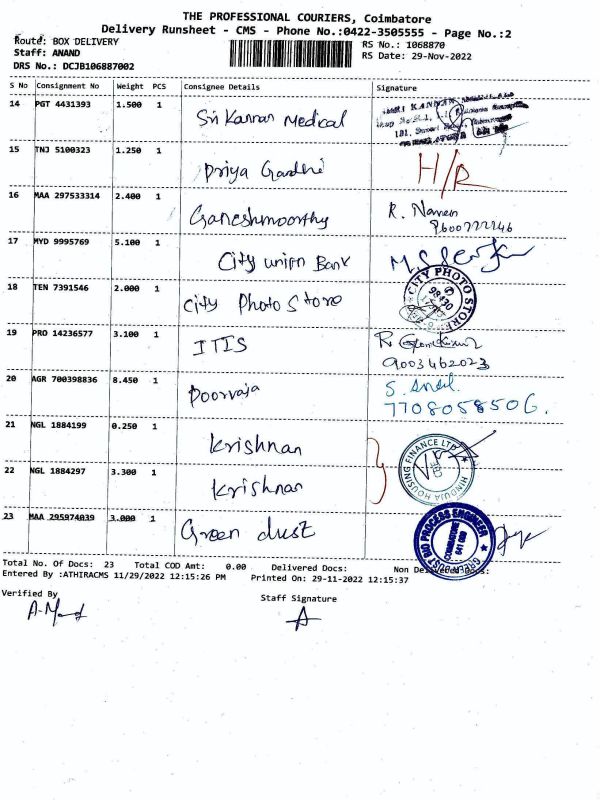 THE PROFESSIONAL COURIERS, Coimbatore
Delivery Runsheet - CMS - Phone No.:0422-3505555 - Page No.:2
Route: BOX DELIVERY
Staff: ANAND
DRS No.: DCJB106887002
RS No.: 1068870
RS Date: 29-Nov-2022
S No Consignment No Weight PCS Consignee Details Signature
14 PGT 4431393 1.500 1 Sri Kannan Medical
15 TNJ 5100323 1.250 1 Priya Gandhi H/R
16 MAA 297533314 2.400 1 Ganeshmoorthy R. Naveen
17 MYD 9995769 5.100 1 City union Bank
18 TEN 7391546 2.000 1 City Photo Store CITY PHOTO STORE
19 PRO 14236577 3.100 1 ITIS R.
9003462023
20 AGR 700398836 8.450 1 Poorvaja S.
7708058506.
21 NGL 1884199 0.250 1 Krishnan HINDUJA HOUSING FINANCE LTD
22 NGL 1884297 3.300 1 Krishnan
23 MAA 295974039 3.000 1 Green dust PROCESS ENGINEER COIMBATORE
Total No. Of Docs: 23 Total COD Amt: 0.00 Delivered Docs: Non Delivered Docs:
Entered By :ATHIRACMS 11/29/2022 12:15:26 PM Printed On: 29-11-2022 12:15:37
Verified By
Staff Signature